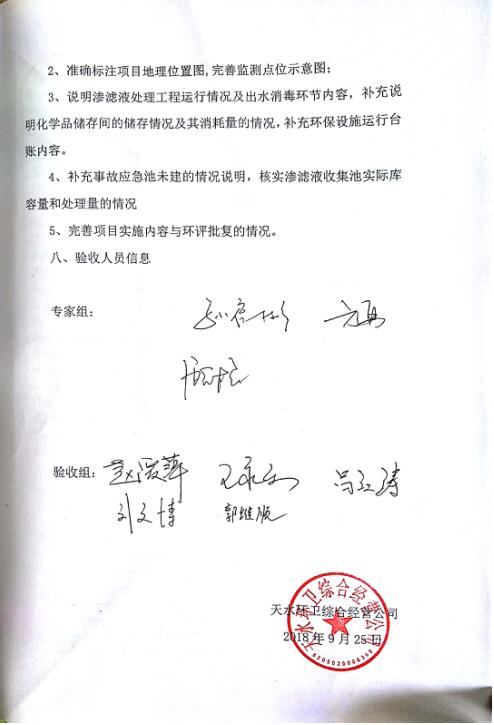 2、准确标注项目地理位置图,完善监测点位示意图;
3、说明渗滤液处理工程运行情况及出水消毒环节内容，补充说
明化学品储存间的储存情况及其消耗量的情况，补充环保设施运行台
账内容。
4、补充事故应急池未建的情况说明，核实渗滤液收集池实际库
容量和处理量的情况
5、完善项目实施内容与环评批复的情况。
八、验收人员信息
专家组:
验收组:
刘文博 郭维顺
天水环卫综合经营公司
天水环卫综合经营公司
2018年9月25日